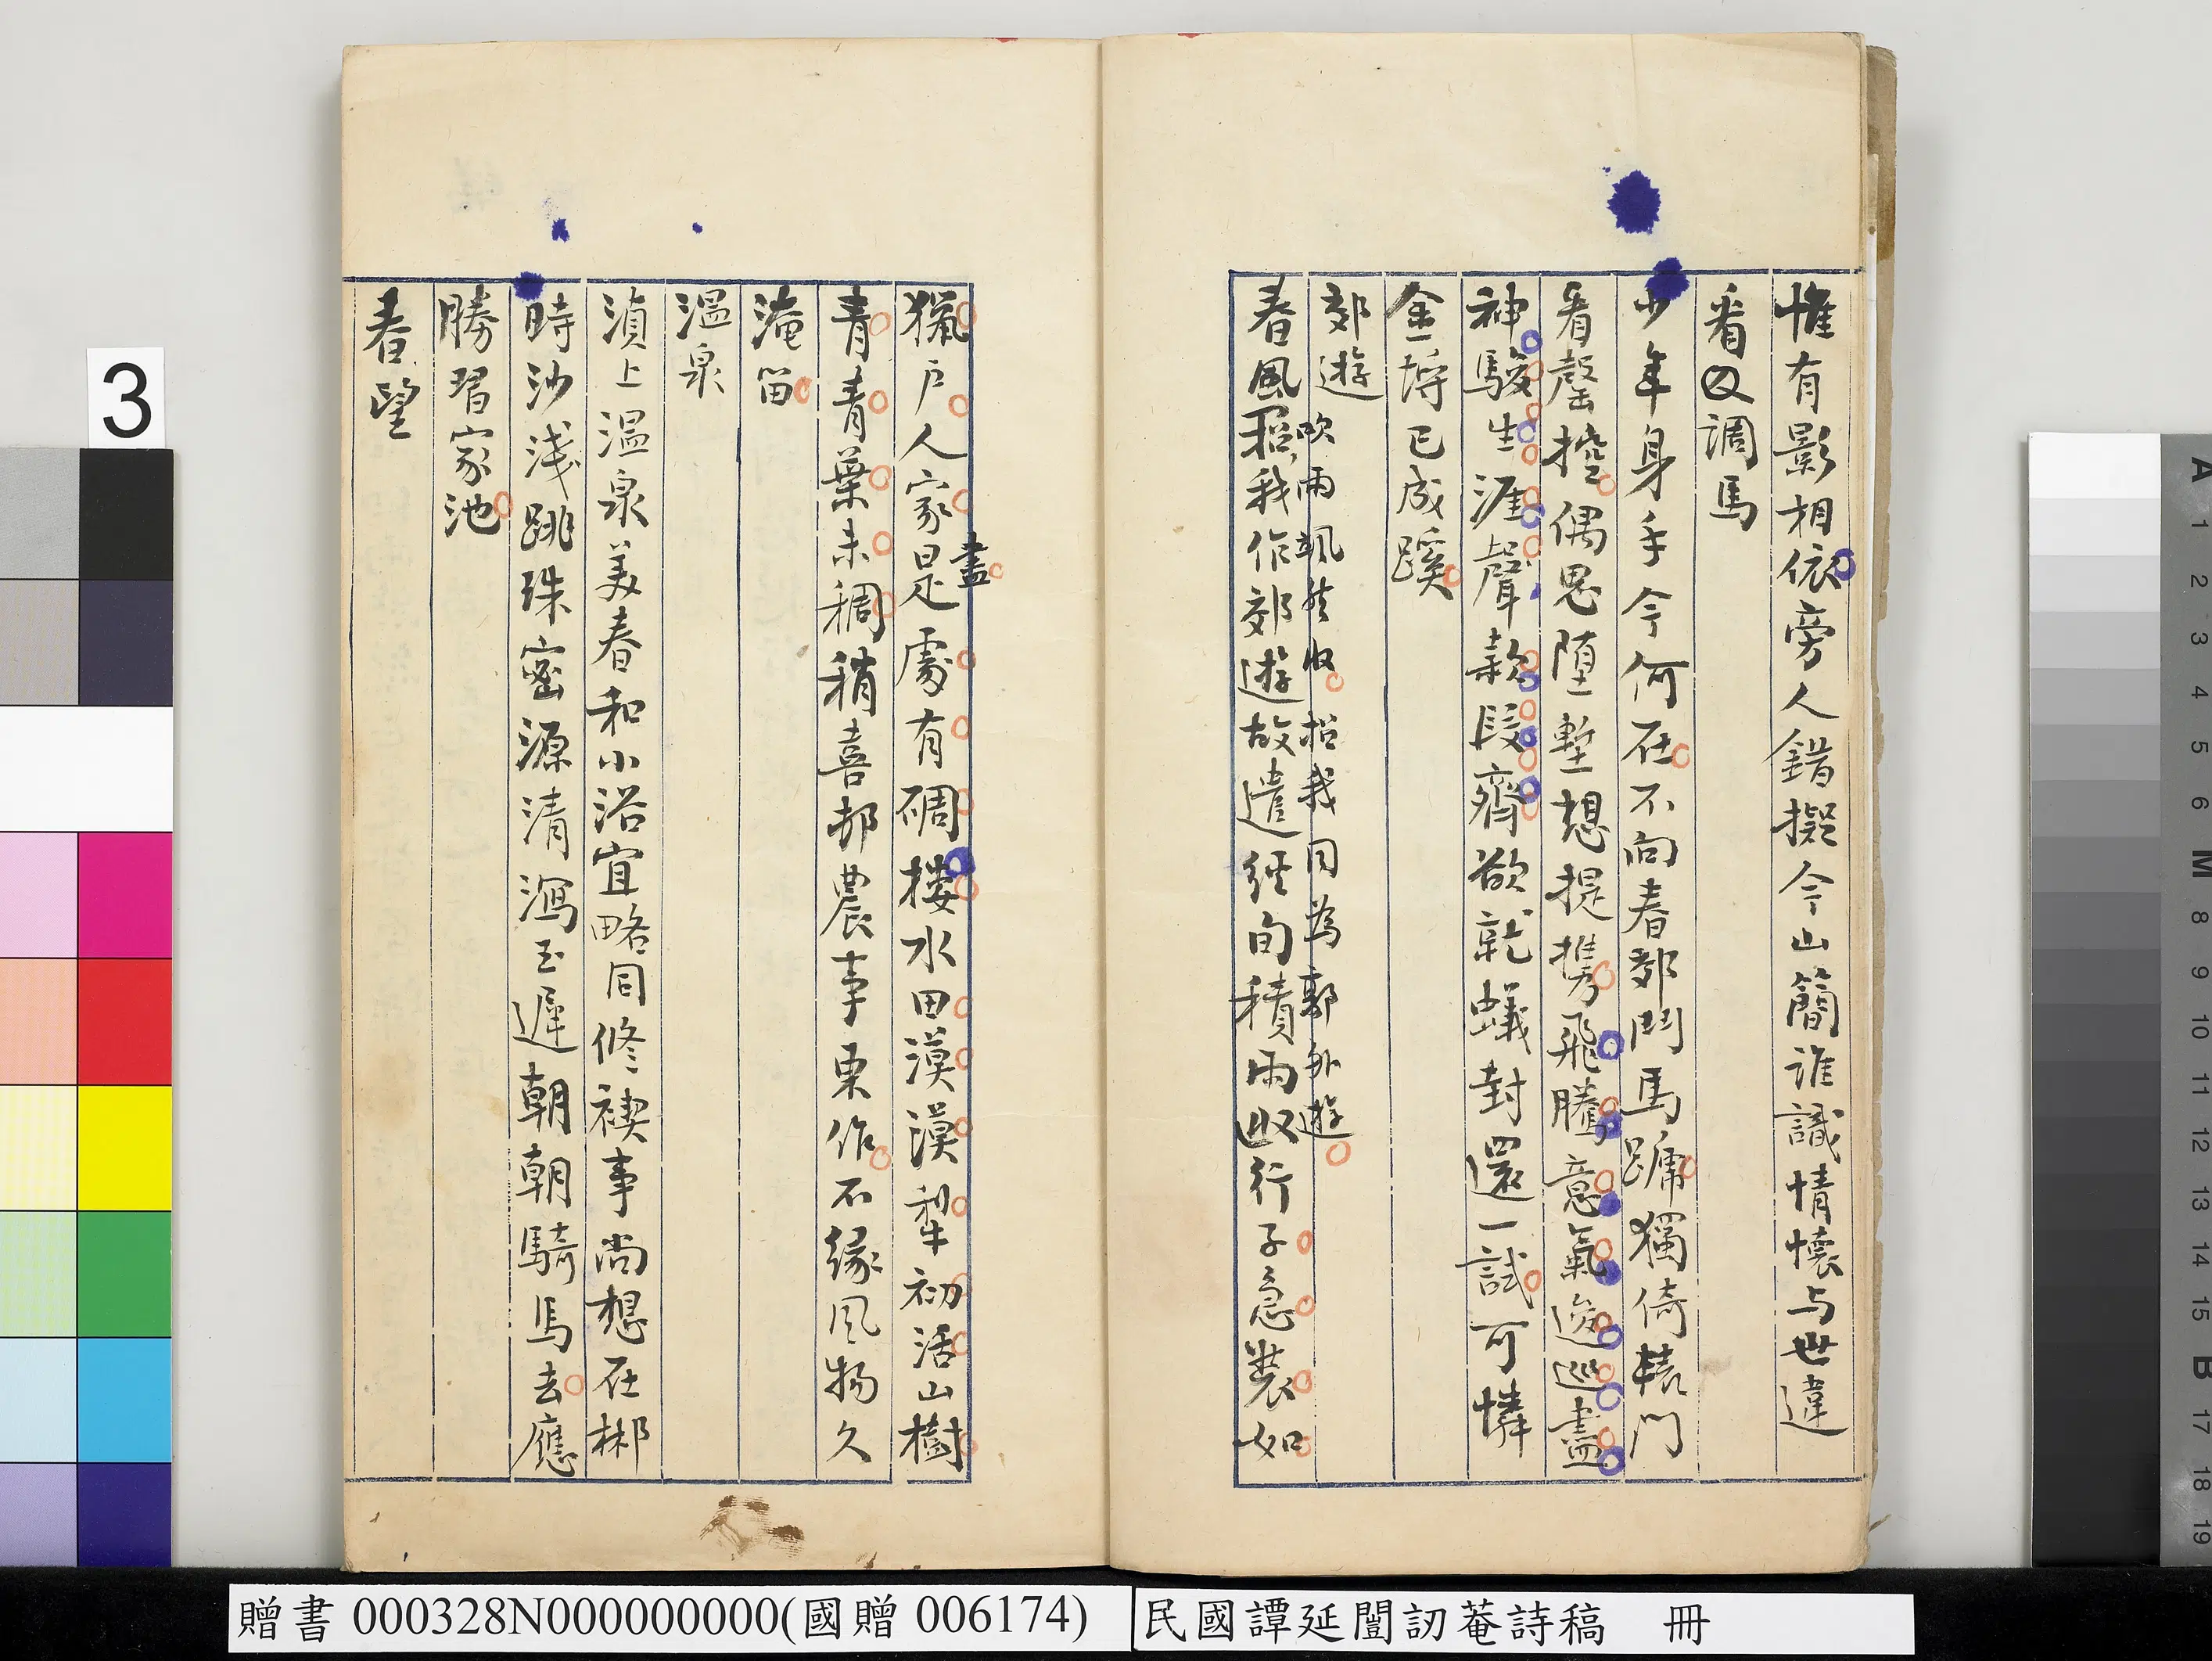 惟有影相依旁人錯擬今山簡誰識情懷与世違
看　調馬
少年身手今何在不向春郊鬥馬蹄獨倚轅門
看罄控偶思墮塹想提攜飛騰意氣逡巡盡
神駿生涯聲款段齊欲就蟻封還一試可憐
金埒已成蹊
郊遊
吹雨飄然收招我同為郭外遊
春風招我作郊遊故遣經旬積雨收行子急裝如
獵戶人家是處有碉樓水田漠漠犁初活山樹
盡
青青葉未稠稍喜郡農事東作不緣風物久
淹留
溫泉
湞上溫泉美春和小浴宜略同修禊事尚想在郴
時沙淺跳珠密源清瀉玉遲朝朝騎馬去應
勝習家池
春望
3
A 1 2 3 4 5 6 M 8 9 10 11 12 13 14 15 B 17 18 19
贈書 000328N000000000(國贈 006174)
民國譚延闓訒菴詩稿 冊